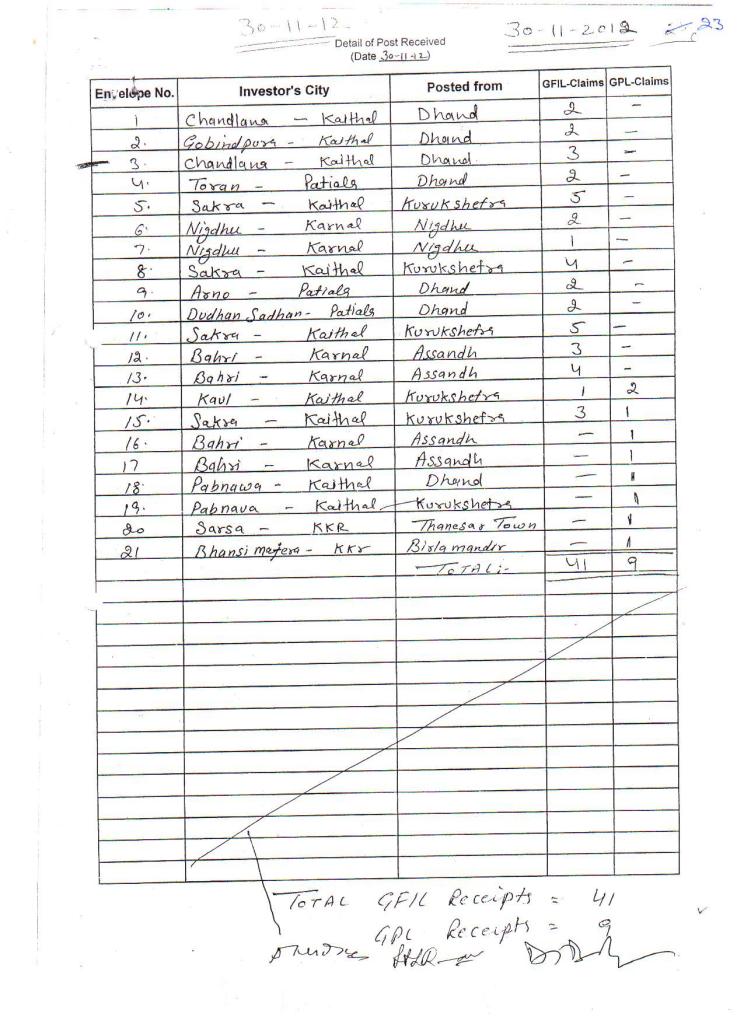 30-11-12
30-11-2012
23
Detail of Post Received
(Date 30-11-12)
Envelope No. Investor's City Posted from GFIL-Claims GPL-Claims
1 Chandlana - Kaithal Dhand 2 -
2. Gobindpura - Kaithal Dhand 2 -
3. Chandlana - Kaithal Dhand 3 -
4. Toran - Patiala Dhand 2 -
5. Sakra - Kaithal Kurukshetra 5 -
6. Nigdhu - Karnal Nigdhu 2 -
7. Nigdhu - Karnal Nigdhu 1 -
8. Sakra - Kaithal Kurukshetra 4 -
9. Arno - Patiala Dhand 2 -
10. Dudhan Sadhan - Patiala Dhand 2 -
11. Sakra - Kaithal Kurukshetra 5 -
12. Bahri - Karnal Assandh 3 -
13. Bahri - Karnal Assandh 4 -
14. Kaul - Kaithal Kurukshetra 1 2
15. Sakra - Kaithal Kurukshetra 3 1
16. Bahri - Karnal Assandh - 1
17 Bahri - Karnal Assandh - 1
18. Pabnawa - Kaithal Dhand - 1
19. Pabnava - Kaithal Kurukshetra - 1
20 Sarsa - KKR Thanesar Town - 1
21 Bhansi majera - KKr Birla mandir - 1
TOTAL:- 41 9
TOTAL GFIL Receipts = 41
GPL Receipts = 9